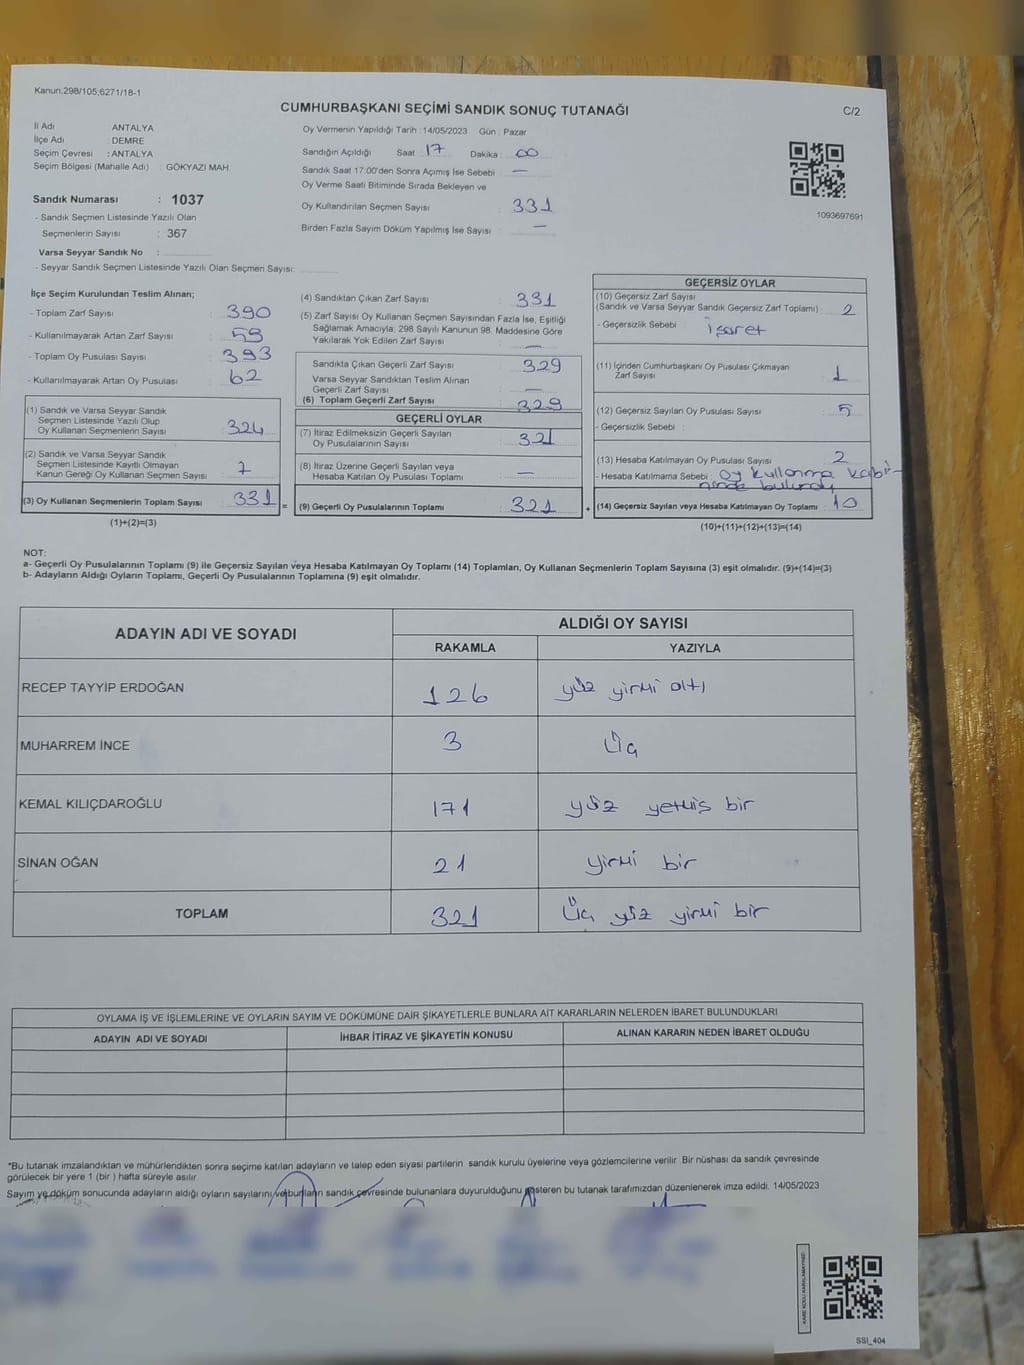 Kanun.298/105;6271/18-1
CUMHURBAŞKANI SEÇİMİ SANDIK SONUÇ TUTANAĞI
C/2
İl Adı ANTALYA
İlçe Adı : DEMRE
Seçim Çevresi : ANTALYA
Seçim Bölgesi (Mahalle Adı) : GÖKYAZI MAH.
Sandık Numarası : 1037
- Sandık Seçmen Listesinde Yazılı Olan
Seçmenlerin Sayısı : 367
Varsa Seyyar Sandık No :
- Seyyar Sandık Seçmen Listesinde Yazılı Olan Seçmen Sayısı:
Oy Vermenin Yapıldığı Tarih : 14/05/2023 Gün : Pazar
Sandığın Açıldığı Saat : 17 Dakika : 00
Sandık Saat 17:00'den Sonra Açımış İse Sebebi : —
Oy Verme Saati Bitiminde Sırada Bekleyen ve
Oy Kullandırılan Seçmen Sayısı : 331
Birden Fazla Sayım Döküm Yapılmış İse Sayısı : —
1093697691
İlçe Seçim Kurulundan Teslim Alınan;
- Toplam Zarf Sayısı : 390
- Kullanılmayarak Artan Zarf Sayısı : 59
- Toplam Oy Pusulası Sayısı : 393
- Kullanılmayarak Artan Oy Pusulası : 62
(1) Sandık ve Varsa Seyyar Sandık
Seçmen Listesinde Yazılı Olup
Oy Kullanan Seçmenlerin Sayısı : 324
(2) Sandık ve Varsa Seyyar Sandık
Seçmen Listesinde Kayıtlı Olmayan
Kanun Gereği Oy Kullanan Seçmen Sayısı : 7
(3) Oy Kullanan Seçmenlerin Toplam Sayısı : 331
(1)+(2)=(3)
(4) Sandıktan Çıkan Zarf Sayısı : 331
(5) Zarf Sayısı Oy Kullanan Seçmen Sayısından Fazla İse, Eşitliği
Sağlamak Amacıyla; 298 Sayılı Kanunun 98. Maddesine Göre
Yakılarak Yok Edilen Zarf Sayısı : —
Sandıkta Çıkan Geçerli Zarf Sayısı : 329
Varsa Seyyar Sandıktan Teslim Alınan
Geçerli Zarf Sayısı : —
(6) Toplam Geçerli Zarf Sayısı : 329
GEÇERLİ OYLAR
(7) İtiraz Edilmeksizin Geçerli Sayılan
Oy Pusulalarının Sayısı : 321
(8) İtiraz Üzerine Geçerli Sayılan veya
Hesaba Katılan Oy Pusulası Toplamı : —
= (9) Geçerli Oy Pusulalarının Toplamı : 321
GEÇERSİZ OYLAR
(10) Geçersiz Zarf Sayısı
(Sandık ve Varsa Seyyar Sandık Geçersiz Zarf Toplamı) : 2
- Geçersizlik Sebebi : İşaret
(11) İçinden Cumhurbaşkanı Oy Pusulası Çıkmayan
Zarf Sayısı : 1
(12) Geçersiz Sayılan Oy Pusulası Sayısı : 5
- Geçersizlik Sebebi :
(13) Hesaba Katılmayan Oy Pusulası Sayısı : 2
- Hesaba Katılmama Sebebi : Oy kullanma kabi-
ninde bulundu
+ (14) Geçersiz Sayılan veya Hesaba Katılmayan Oy Toplamı : 10
(10)+(11)+(12)+(13)=(14)
NOT:
a- Geçerli Oy Pusulalarının Toplamı (9) ile Geçersiz Sayılan veya Hesaba Katılmayan Oy Toplamı (14) Toplamları, Oy Kullanan Seçmenlerin Toplam Sayısına (3) eşit olmalıdır. (9)+(14)=(3)
b- Adayların Aldığı Oyların Toplamı, Geçerli Oy Pusulalarının Toplamına (9) eşit olmalıdır.
ADAYIN ADI VE SOYADI
ALDIĞI OY SAYISI
RAKAMLA YAZIYLA
RECEP TAYYİP ERDOĞAN 126 yüz yirmi altı
MUHARREM İNCE 3 Üç
KEMAL KILIÇDAROĞLU 171 yüz yetmiş bir
SİNAN OĞAN 21 yirmi bir
TOPLAM 321 Üç yüz yirmi bir
OYLAMA İŞ VE İŞLEMLERİNE VE OYLARIN SAYIM VE DÖKÜMÜNE DAİR ŞİKAYETLERLE BUNLARA AİT KARARLARIN NELERDEN İBARET BULUNDUKLARI
ADAYIN ADI VE SOYADI İHBAR İTİRAZ VE ŞİKAYETİN KONUSU ALINAN KARARIN NEDEN İBARET OLDUĞU
*Bu tutanak imzalandıktan ve mühürlendikten sonra seçime katılan adayların ve talep eden siyasi partilerin sandık kurulu üyelerine veya gözlemcilerine verilir. Bir nüshası da sandık çevresinde
görülecek bir yere 1 (bir ) hafta süreyle asılır.
Sayım ve döküm sonucunda adayların aldığı oyların sayılarını ve bunların sandık çevresinde bulunanlara duyurulduğunu gösteren bu tutanak tarafımızdan düzenlenerek imza edildi. 14/05/2023
SSI_404